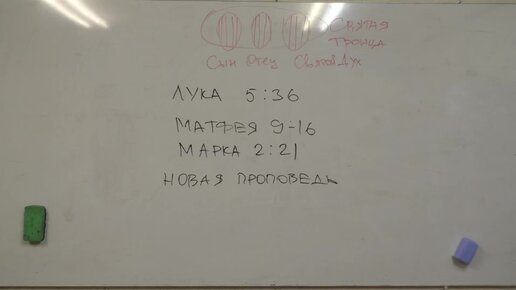 Святая
Троица
Сын Отец Святой Дух
ЛУКА 5:36
МАТФЕЯ 9-16
МАРКА 2:21
НОВАЯ ПРОПОВЕДЬ